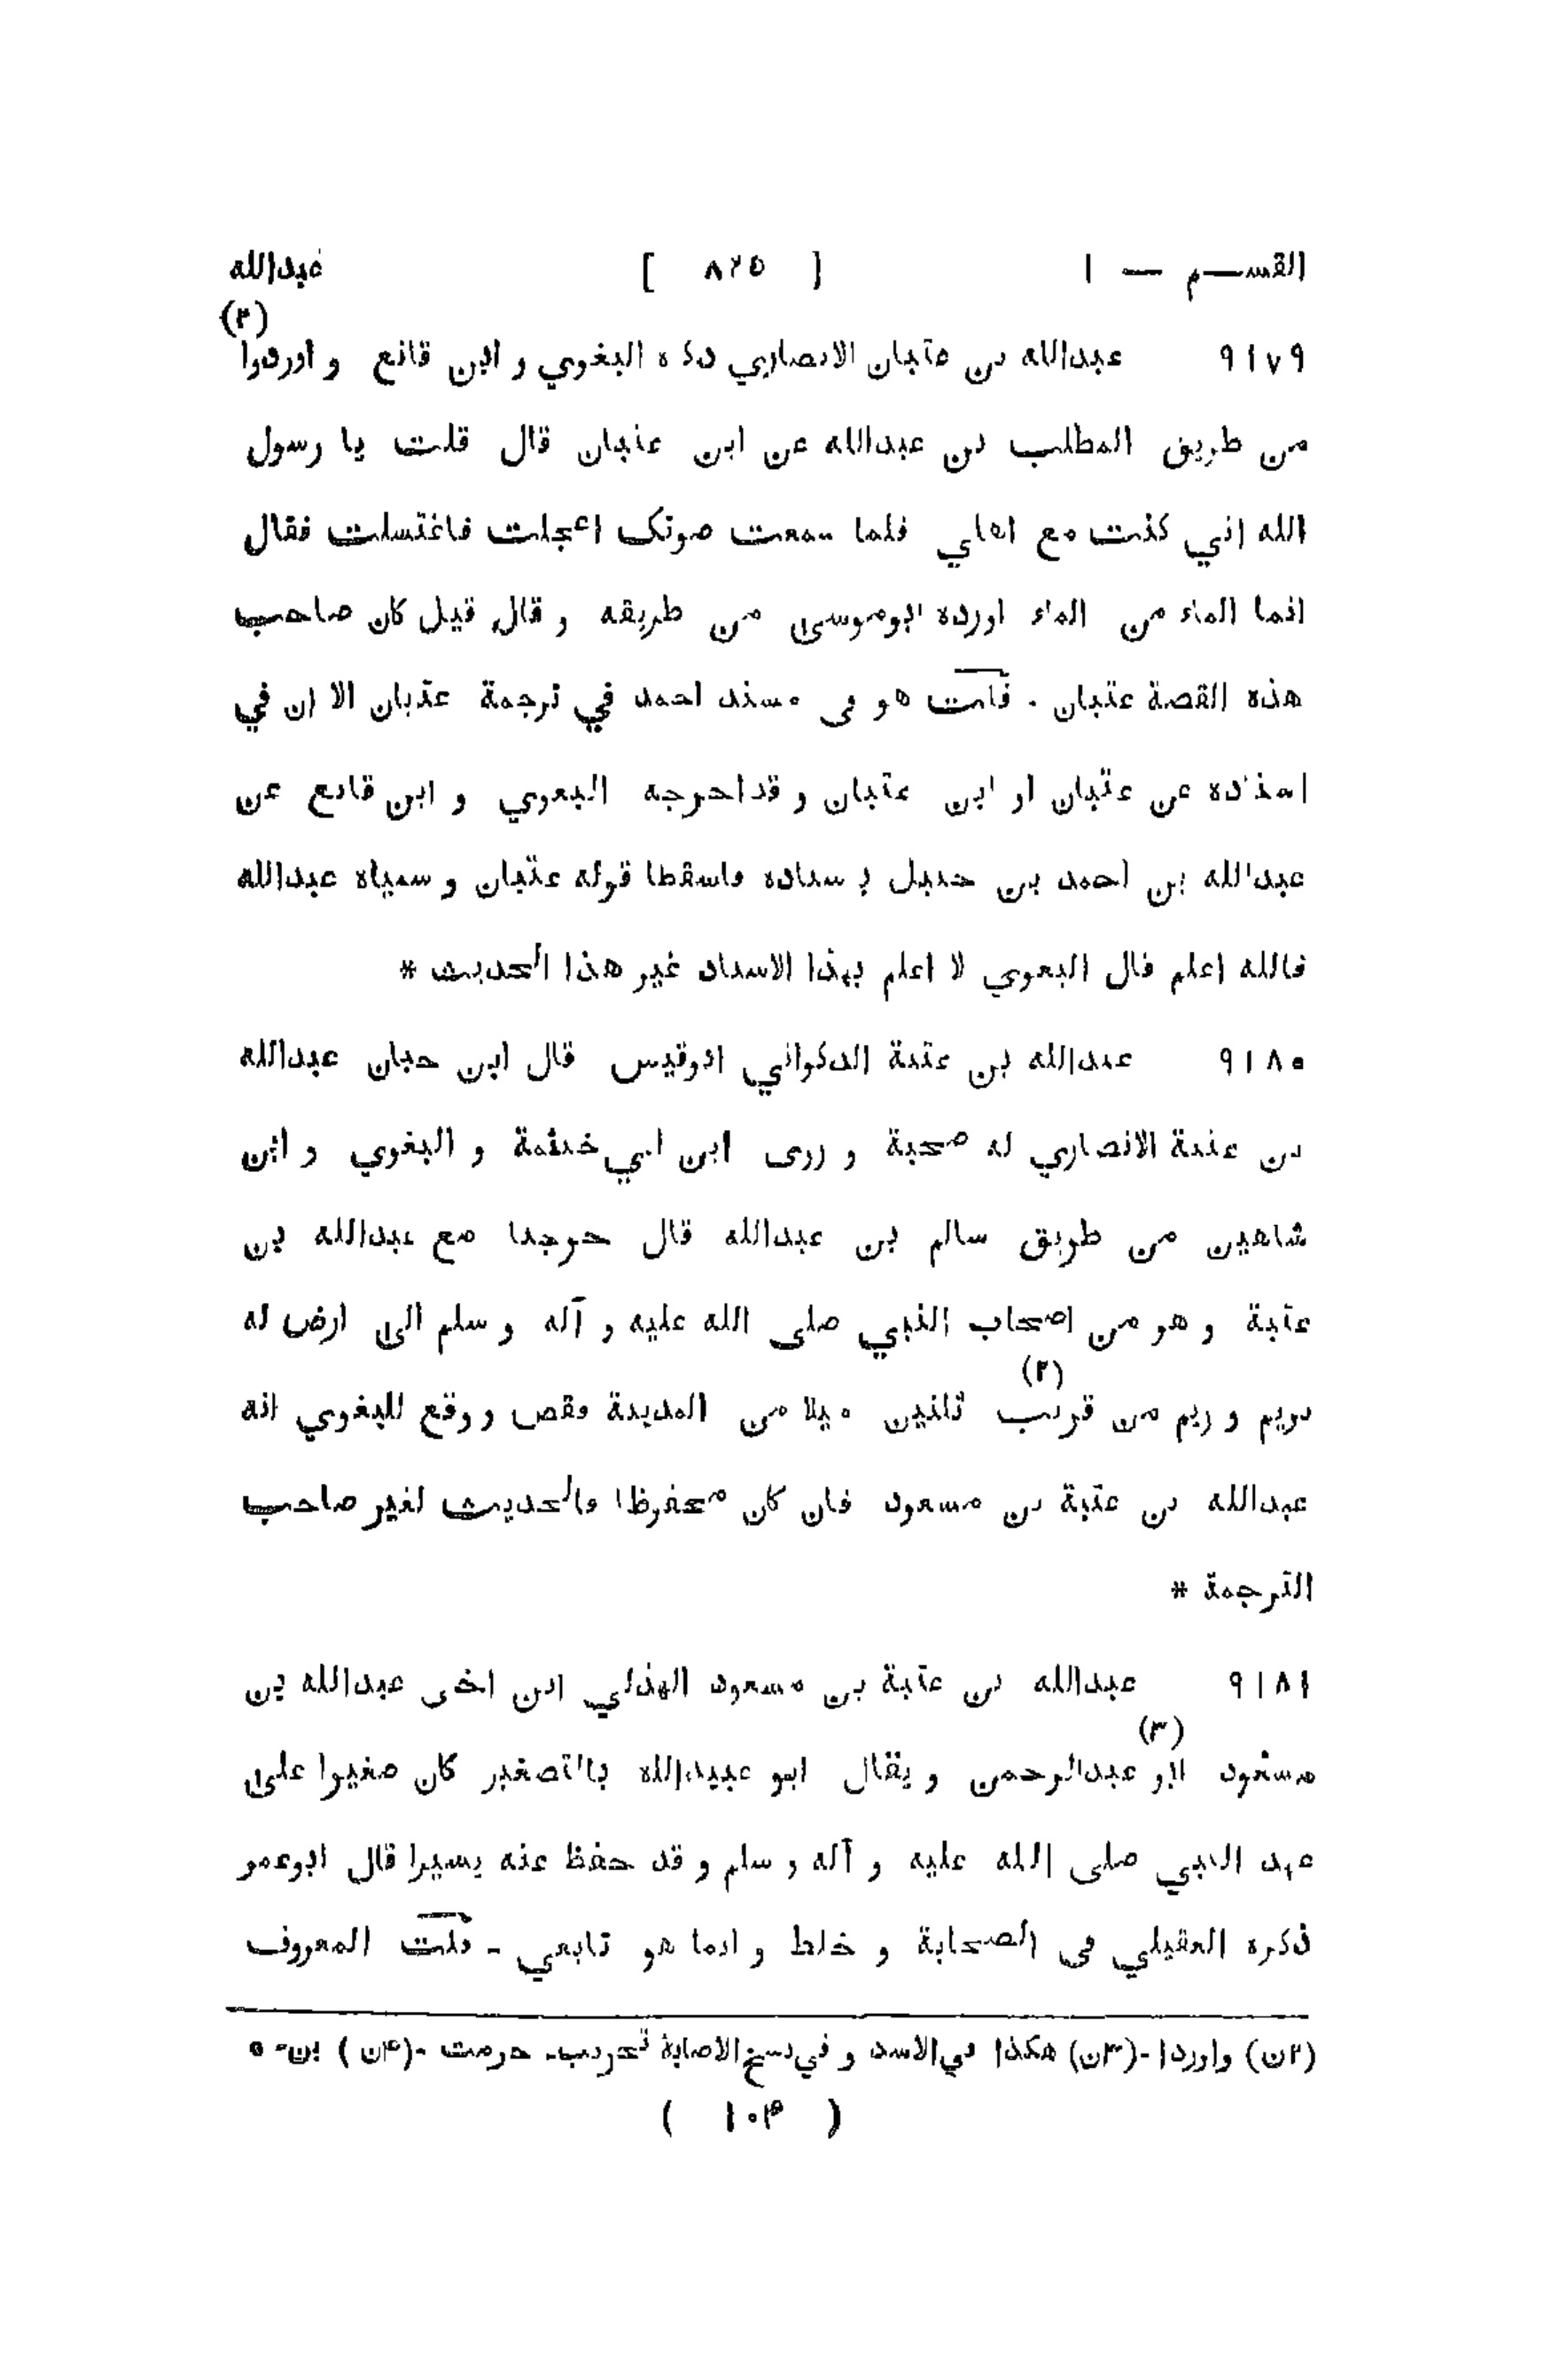 القسم — ١ [ ٨٢٥ ] عبدالله
(٢)
٩١٧٩ عبدالله بن عتبان الانصاري ذكره البغوي و ابن قانع و اوردوا
من طريق المطلب بن عبدالله عن ابن عتبان قال قلت يا رسول
الله اني كنت مع اهلي فلما سمعت صوتک اعجلت فاغتسلت فقال
انما الماء من الماء اورده ابوموسى من طريقه و قال قيل كان صاحب
هذه القصة عتبان . قلت هو في مسند احمد في ترجمة عتبان الا ان في
اسناده عن عتبان او ابن عتبان و قد اخرجه البغوي و ابن قانع عن
عبدالله بن احمد بن حنبل باسناده فاسقطا قوله عتبان و سمياه عبدالله
فالله اعلم قال البغوي لا اعلم بهذا الاسناد غير هذا الحديث *
٩١٨٠ عبدالله بن عتبة الذكواني ابوقيس قال ابن حبان عبدالله
بن عتبة الانصاري له صحبة و روى ابن ابي خيثمة و البغوي و ابن
شاهين من طريق سالم بن عبدالله قال خرجنا مع عبدالله بن
عتبة و هو من اصحاب النبي صلى الله عليه و آله و سلم الى ارض له
(٣)
بريم و ريم من قريب ثلثين ميلا من المدينة فقص و وقع للبغوي انه
عبدالله بن عتبة بن مسعود فان كان محفوظا فالحديث لغير صاحب
الترجمة *
٩١٨١ عبدالله بن عتبة بن مسعود الهذلي ابن اخى عبدالله بن
(٣)
مسعود ابو عبدالرحمن و يقال ابو عبيدالله بالتصغير كان صغيرا على
عهد النبي صلى الله عليه و آله و سلم و قد حفظ عنه يسيرا قال ابوعمر
ذكره العقيلي في الصحابة و خلط و انما هو تابعي - قلت المعروف
(٢ن) واوردا -(٣ن) هكذا في الاسد و في نسخ الاصابة -(۴ن) بن- ٥
( ١٠۴ )